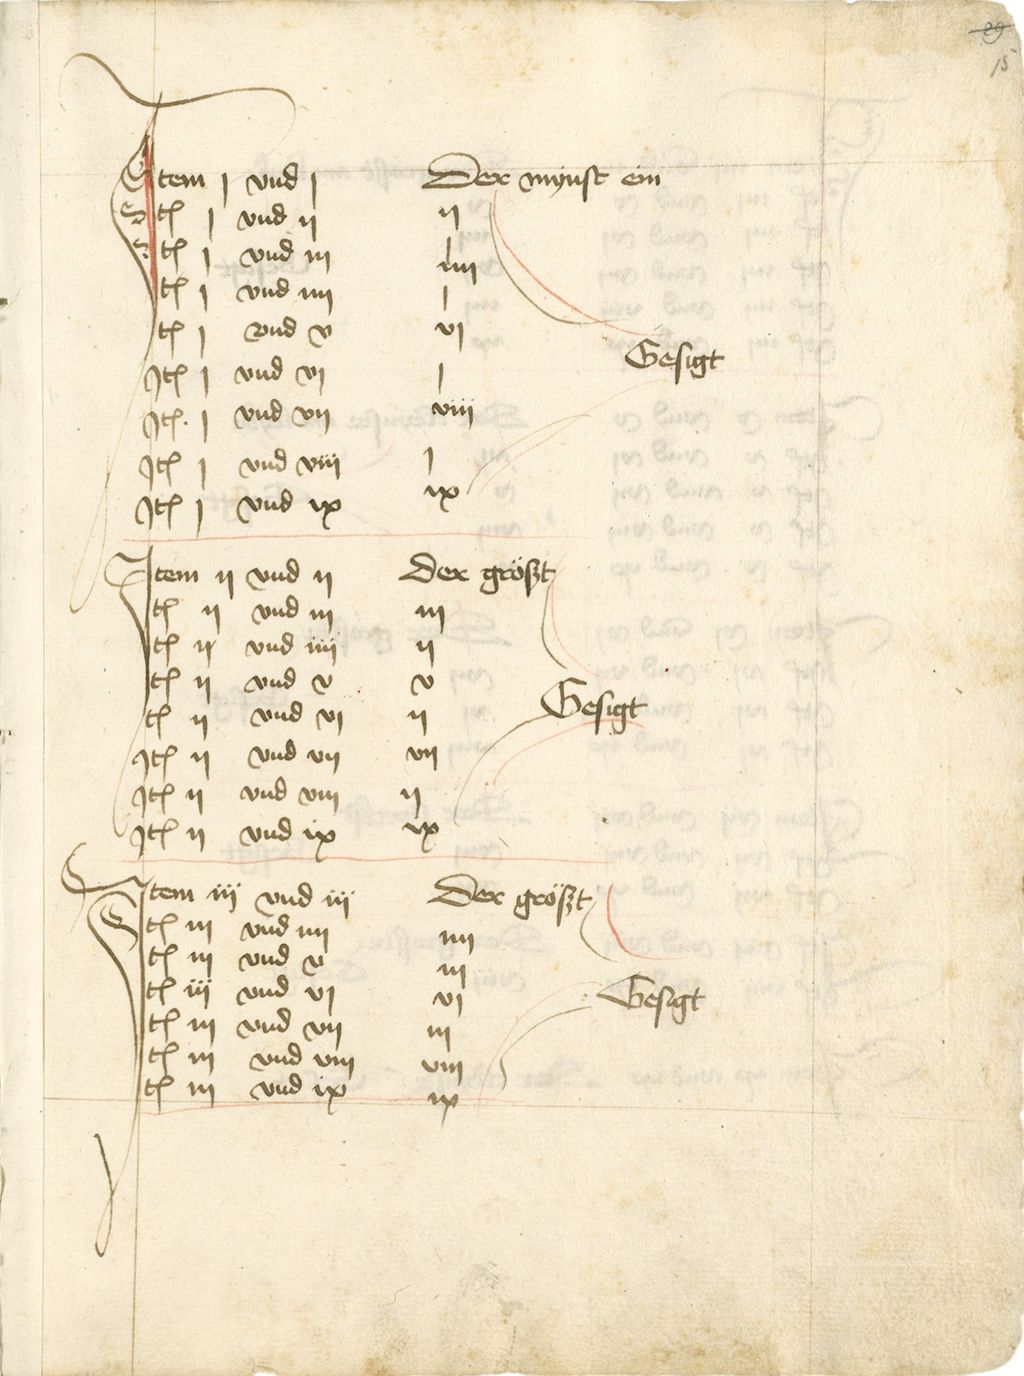 29
15
Item j vnd j Der mynst ein
Itƺ j vnd ij ij
Itƺ j vnd iij j
Itƺ j vnd iiij iiij
Itƺ j vnd v j
vj
Gesigt
Itƺ j vnd vj j
Itƺ. j vnd vij viij
Itƺ j vnd viij j
Itƺ j vnd ix ix
Item ij vnd ij Der größt
Itƺ ij vnd iij iij
Itƺ ij vnd iiij ij
Itƺ ij vnd v v
Itƺ ij vnd vj ij Gesigt
Itƺ ij vnd vij vij
Itƺ ij vnd viij ij
Itƺ ij vnd ix ix
Item iij vnd iij Der größt
Itƺ iij vnd iiij iiij
Itƺ iij vnd v iij
Itƺ iij vnd vj vj Gesigt
Itƺ iij vnd vij iij
Itƺ iij vnd viij viij
Itƺ iij vnd ix ix